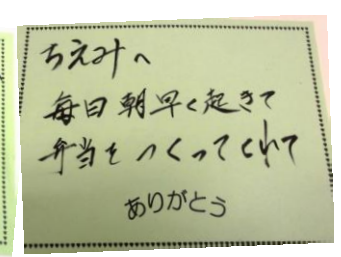 ちえみへ
毎日朝早く起きて
弁当をつくってくれて
ありがとう